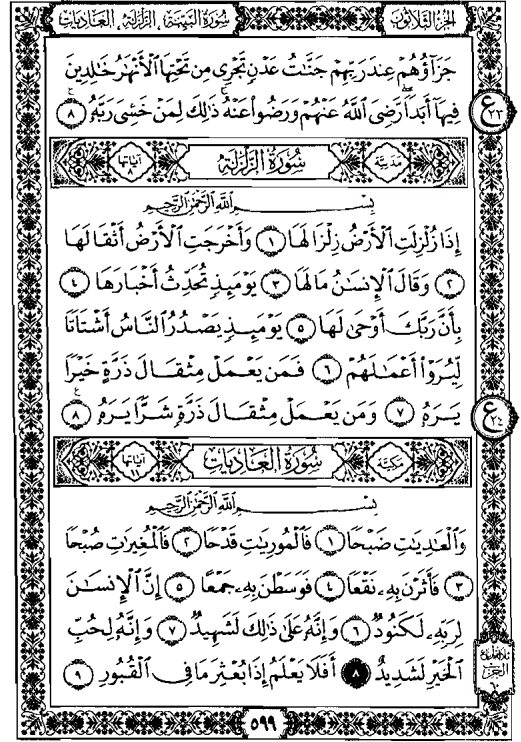 الجزء الثلاثون
سورة البينة، الزلزلة، العاديات
جَزَآؤُهُمْ عِندَ رَبِّهِمْ جَنَّٰتُ عَدْنٍ تَجْرِى مِن تَحْتِهَا ٱلْأَنْهَٰرُ خَٰلِدِينَ
فِيهَآ أَبَدًا رَّضِىَ ٱللَّهُ عَنْهُمْ وَرَضُوا۟ عَنْهُ ذَٰلِكَ لِمَنْ خَشِىَ رَبَّهُۥ ٨
مدنية سُورَةُ الزَّلْزَلَةِ آياتها ٨
بِسْمِ ٱللَّهِ ٱلرَّحْمَٰنِ ٱلرَّحِيمِ
إِذَا زُلْزِلَتِ ٱلْأَرْضُ زِلْزَالَهَا ١ وَأَخْرَجَتِ ٱلْأَرْضُ أَثْقَالَهَا
٢ وَقَالَ ٱلْإِنسَٰنُ مَا لَهَا ٣ يَوْمَئِذٍ تُحَدِّثُ أَخْبَارَهَا ٤
بِأَنَّ رَبَّكَ أَوْحَىٰ لَهَا ٥ يَوْمَئِذٍ يَصْدُرُ ٱلنَّاسُ أَشْتَاتًا
لِّيُرَوْا۟ أَعْمَٰلَهُمْ ٦ فَمَن يَعْمَلْ مِثْقَالَ ذَرَّةٍ خَيْرًا
يَرَهُۥ ٧ وَمَن يَعْمَلْ مِثْقَالَ ذَرَّةٍ شَرًّا يَرَهُۥ ٨
مكية سُورَةُ العَادِيَاتِ آياتها ١١
بِسْمِ ٱللَّهِ ٱلرَّحْمَٰنِ ٱلرَّحِيمِ
وَٱلْعَٰدِيَٰتِ ضَبْحًا ١ فَٱلْمُورِيَٰتِ قَدْحًا ٢ فَٱلْمُغِيرَٰتِ صُبْحًا
٣ فَأَثَرْنَ بِهِۦ نَقْعًا ٤ فَوَسَطْنَ بِهِۦ جَمْعًا ٥ إِنَّ ٱلْإِنسَٰنَ
لِرَبِّهِۦ لَكَنُودٌ ٦ وَإِنَّهُۥ عَلَىٰ ذَٰلِكَ لَشَهِيدٌ ٧ وَإِنَّهُۥ لِحُبِّ
ٱلْخَيْرِ لَشَدِيدٌ ٨ أَفَلَا يَعْلَمُ إِذَا بُعْثِرَ مَا فِى ٱلْقُبُورِ ٩
٥٩٩